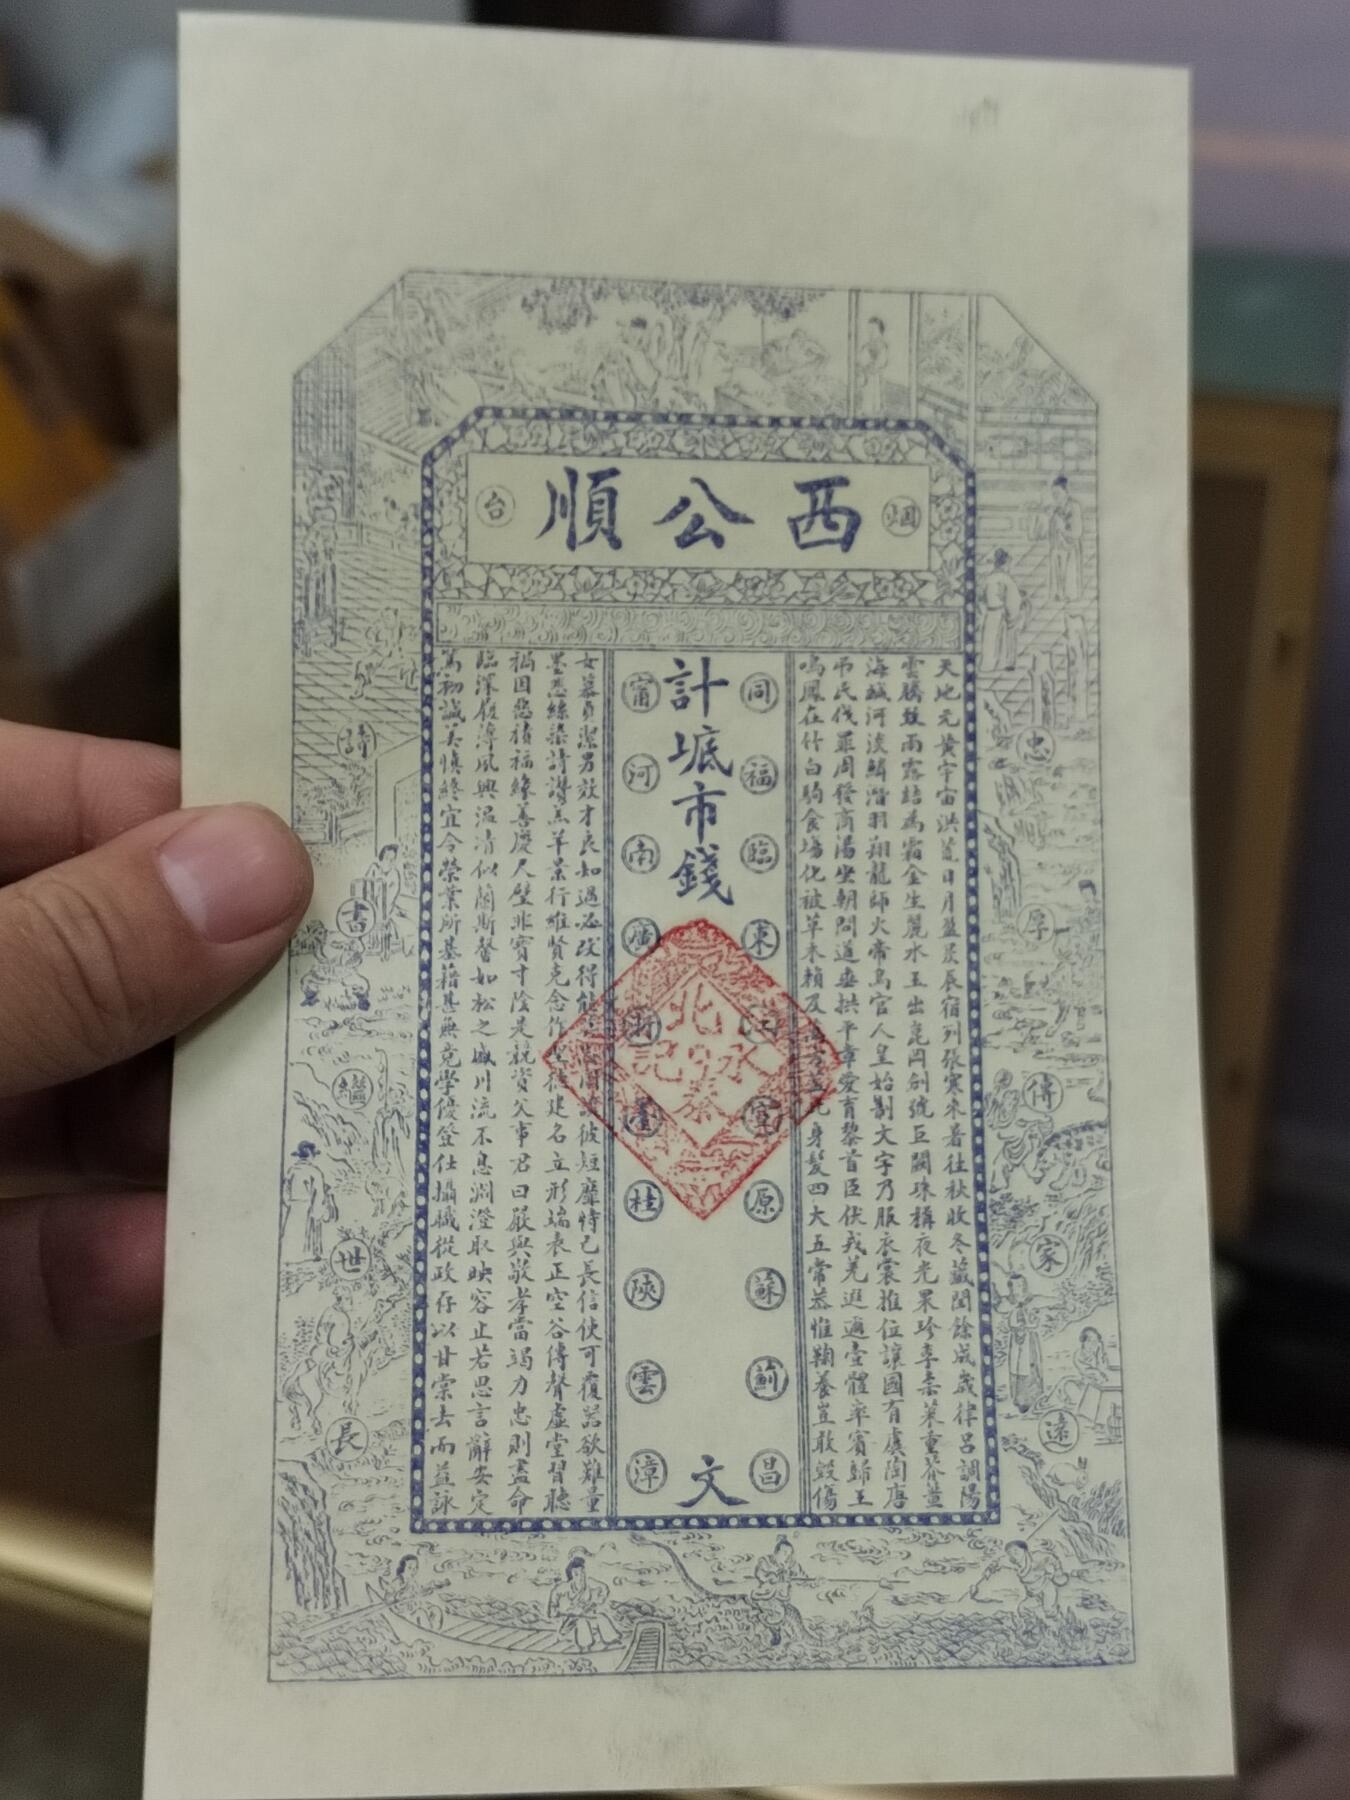 烟西公順台
天地元黃宇宙洪荒日月盈昃辰宿列張寒來暑往秋收冬藏閏餘成歲律呂調陽
雲騰致雨露結為霜金生麗水玉出崑岡劍號巨闕珠稱夜光果珍李柰菜重芥薑
海鹹河淡鱗潛羽翔龍師火帝鳥官人皇始制文字乃服衣裳推位讓國有虞陶唐
弔民伐罪周發商湯坐朝問道垂拱平章愛育黎首臣伏戎羌遐邇壹體率賓歸王
鳴鳳在竹白駒食場化被草木賴及萬方蓋此身髮四大五常恭惟鞠養豈敢毀傷
同福臨東江宣原蘇薊昌
計坻市錢文
甯河南廣浙臺桂陝雲漳
女慕貞潔男效才良知過必改得能莫忘罔談彼短靡恃己長信使可覆器欲難量
墨悲絲染詩讚羔羊景行維賢克念作聖德建名立形端表正空谷傳聲虛堂習聽
禍因惡積福緣善慶尺璧非寶寸陰是競資父事君曰嚴與敬孝當竭力忠則盡命
臨深履薄夙興溫凊似蘭斯馨如松之盛川流不息淵澄取映容止若思言辭安定
篤初誠美慎終宜令榮業所基籍甚無竟學優登仕攝職從政存以甘棠去而益詠
忠厚傳家遠
詩書繼世長
北永泰記